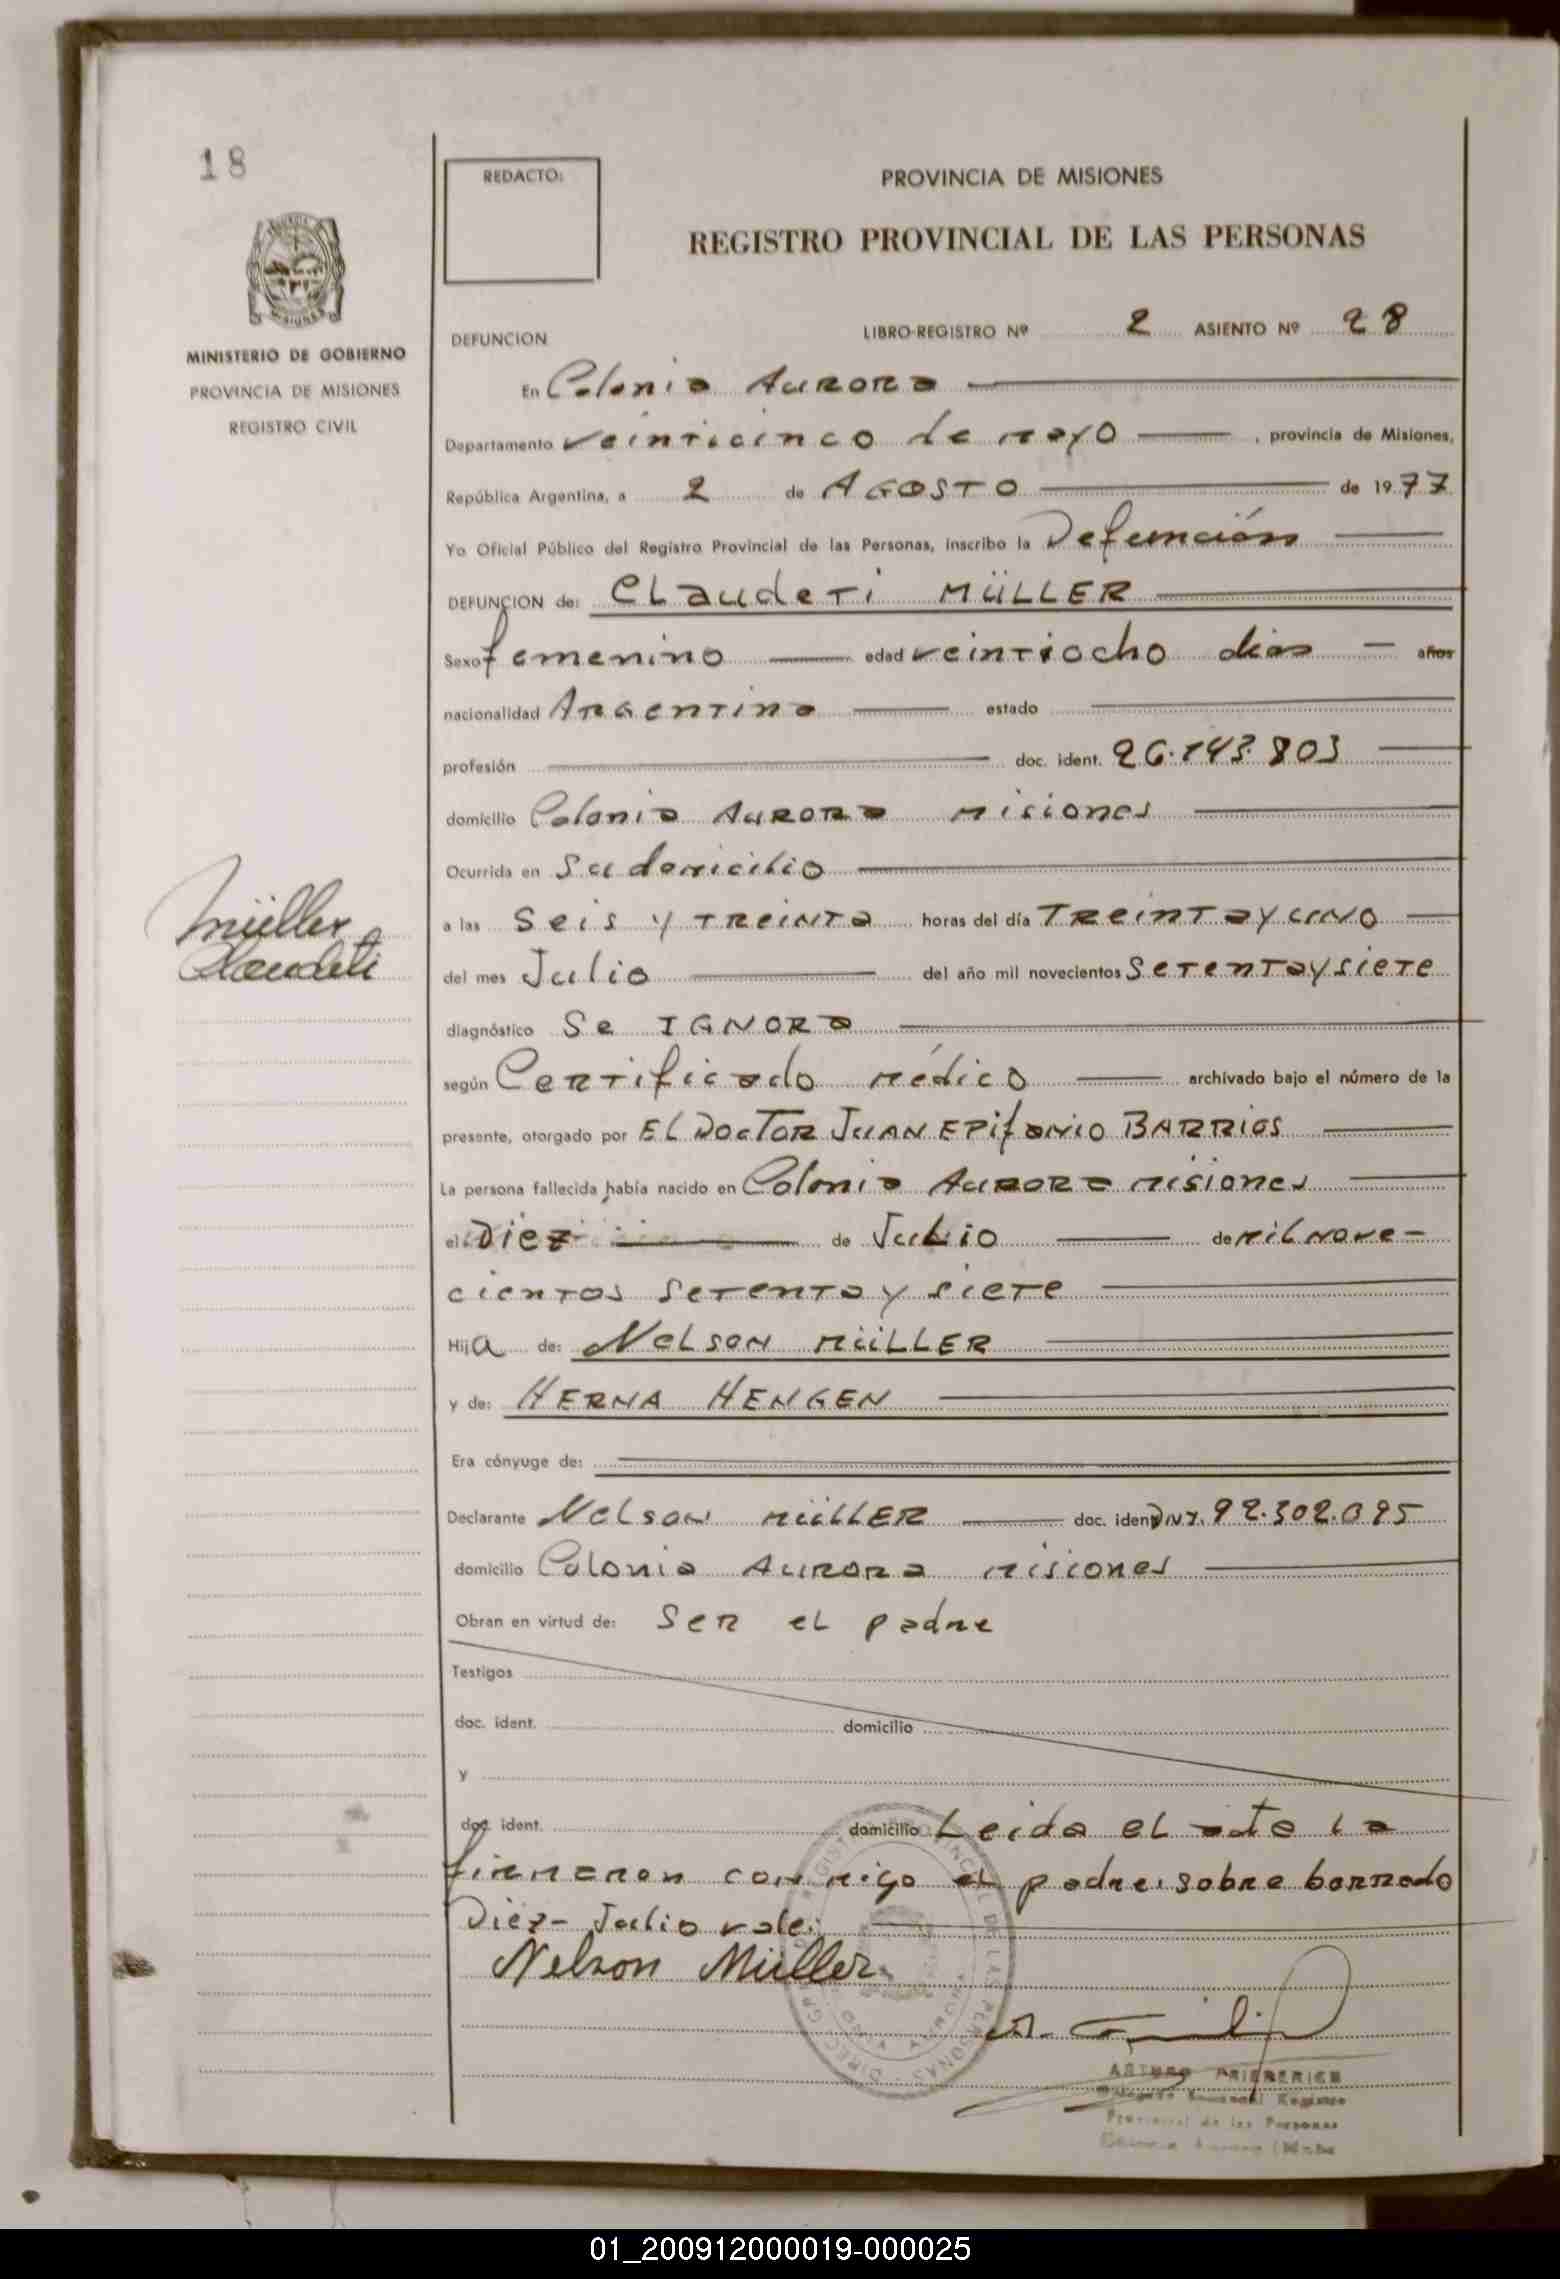 18
REDACTO:
PROVINCIA DE MISIONES
REGISTRO PROVINCIAL DE LAS PERSONAS
MISIONES
MINISTERIO DE GOBIERNO
PROVINCIA DE MISIONES
REGISTRO CIVIL
DEFUNCION LIBRO-REGISTRO Nº 2 ASIENTO Nº 28
En Colonia Aurora
Departamento veinticinco de mayo, provincia de Misiones,
República Argentina, a 2 de AGOSTO de 1977
Yo Oficial Público del Registro Provincial de las Personas, inscribo la Defunción
DEFUNCION de: Claudeti MÜLLER
Sexo femenino edad veintiocho dias años
nacionalidad Argentina estado
profesión doc. ident. 26.143.803
domicilio Colonia Aurora misiones
Ocurrida en Su domicilio
Müller
Claudeti
a las Seis y treinta horas del día Treintayuno
del mes Julio del año mil novecientos Setentaysiete
diagnóstico Se IGNORa
según Certificado médico archivado bajo el número de la
presente, otorgado por EL DocTOR JUAN EPifanio BARRIOS
La persona fallecida había nacido en Colonia Aurora misiones
el Diez de Julio de milnove-
cientos setenta y siete
Hija de: Nelson MÜLLER
y de: HERNA HENGEN
Era cónyuge de:
Declarante Nelson MÜLLER doc. ident DNI. 92.302.095
domicilio Colonia Aurora misiones
Obran en virtud de: Ser el padre
Testigos
doc. ident. domicilio
y
doc. ident. domicilio Leida el acta la
firmaron con migo el padre: sobre borrado
Diez- Julio vale:
Nelson Müller
ARTURO FRIEDERICH
Registro
Provincial de las Personas
01_200912000019-000025